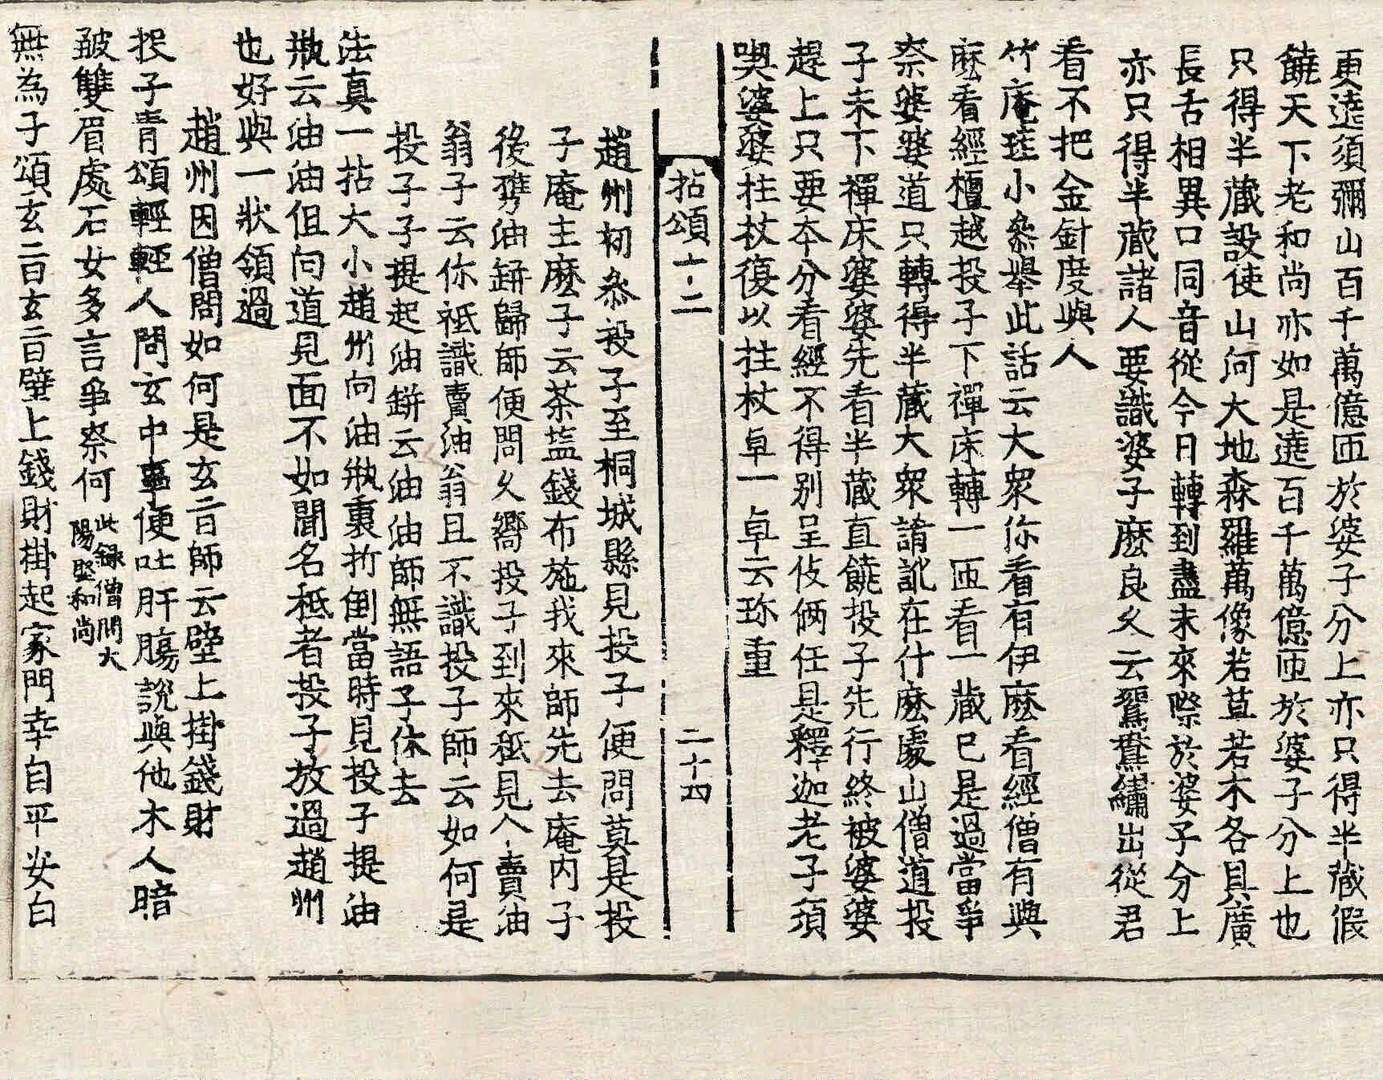 更遶須彌山百千萬億匝於婆子分上亦只得半藏假
饒天下老和尚亦如是遶百千萬億匝於婆子分上也
只得半藏設使山河大地森羅萬像若草若木各具廣
長舌相異口同音從今日轉到盡未來際於婆子分上
亦只得半藏諸人要識婆子麽良久云鴛鴦繡出從君
看不把金針度與人
竹庵珪小叅舉此話云大眾你看有伊麽看經僧有與
麽看經檀越投子下禪床轉一匝看一藏已是過當爭
柰婆婆道只轉得半藏大眾誵訛在什麽處山僧道投
子未下禪床婆婆先看半藏直饒投子先行終被婆婆
趕上只要本分看經不得別呈伎倆任是釋迦老子須
喫婆婆拄杖復以拄杖卓一卓云珎重
拈頌十二 二十四
趙州初叅投子至桐城縣見投子便問莫是投
子庵主麽子云茶盐錢布施我來師先去庵內子
後㩦油缾歸師便問久嚮投子到來秖見人賣油
翁子云你秖識賣油翁且不識投子師云如何是
投子子提起油缾云油油師無語子休去
法真一拈大小趙州向油瓶裏折倒當時見投子提油
瓶云油油但向道見面不如聞名秖者投子放過趙州
也好與一狀領過
趙州因僧問如何是玄旨師云壁上掛錢財
投子青頌輕輕人問玄中事便吐肝膓說與他木人暗
皺雙眉處石女多言爭柰何 此録僧問大
陽堅和尚
無為子頌玄旨玄旨壁上錢財掛起家門幸自平安白